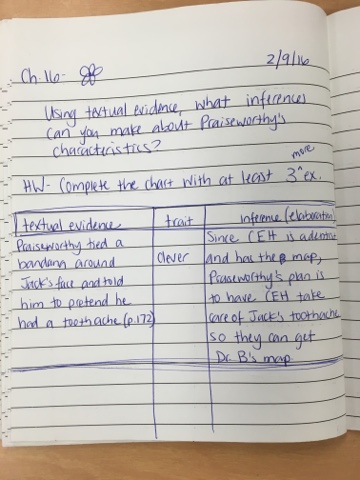 Ch. 16-
2/9/16
Using textual evidence, what inferences
can you make about Praiseworthy's
characteristics?
more
HW- Complete the chart with at least 3^ex.
textual evidence
Praiseworthy tied a
bandana around
Jack's face and told
him to pretend he
had a toothache (p.172)
trait
clever
Inference (elaboration)
Since CEH is a dentist
and has the map,
Praiseworthy's plan is
to have CEH take
care of Jack's toothache
so they can get
Dr. B's map